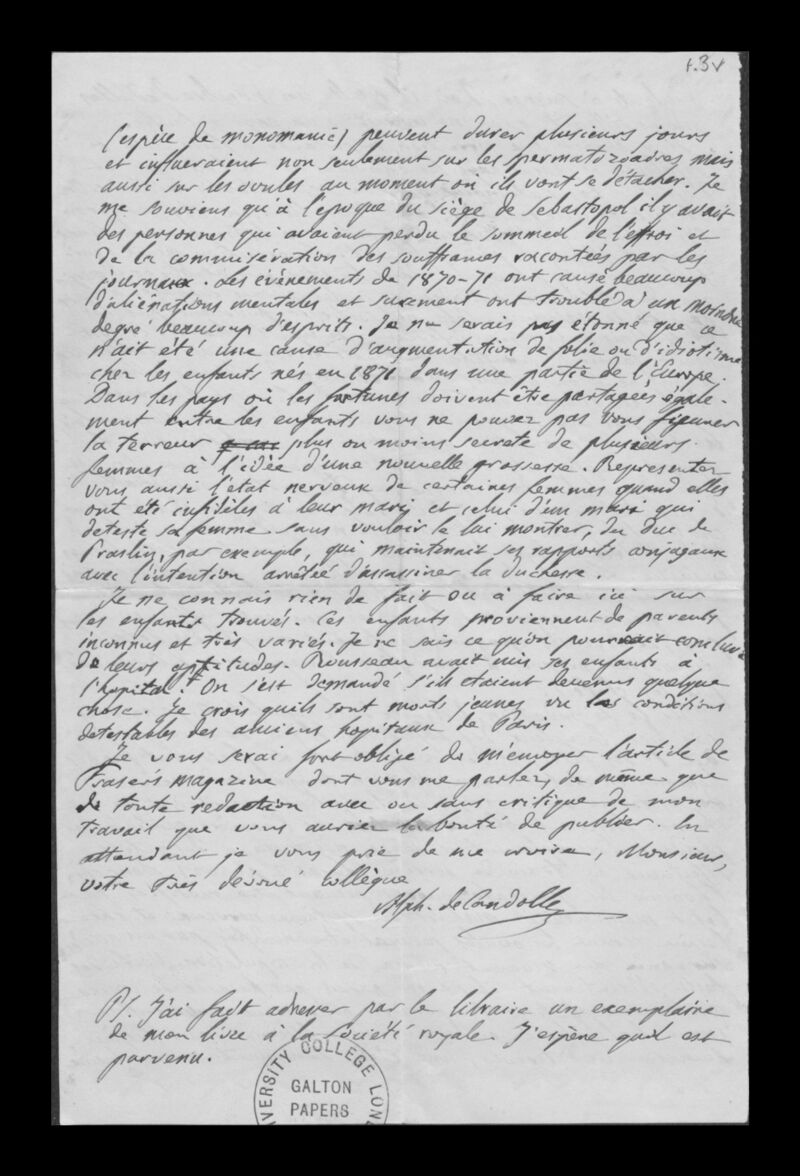 f.3v
(espèce de monomanie) peuvent durer plusieurs jours
et influeraient non seulement sur les spermatozoadres mais
aussi sur les ovules au moment où ils vont se détacher. Je
me souviens qu'à l'époque du siège de Sebastopol il y avait
des personnes qui avaient perdu le sommeil de l'effroi et
de la commisération des souffrances racontées par les
journaux. Les événements de 1870-71 ont causé beaucoup
d'aliénations mentales et surement ont troublé à un moindre
degré beaucoup d'esprits. Je ne serais pas étonné que ce
n'ait été une cause d'augmentation de folie ou d'idiotisme
chez les enfants nés en 1871 dans une partie de l'Europe.
Dans les pays où les fortunes doivent être partagées égale-
ment entre les enfants vous ne pouvez pas vous figurer
la terreur plus ou moins secrete de plusieurs
femmes à l'idée d'une nouvelle grossesse. Representez
vous aussi l'état nerveux de certaines femmes quand elles
ont été infidèles à leur mari, et celui d'un mari qui
deteste sa femme sans vouloir le lui montrer, du duc de
Praslin, par exemple, qui maintenait ses rapports conjugaux
avec l'intention arrêtée d'assassiner la duchesse.
Je ne connais rien de fait ou à faire ici sur
les enfants trouvés. Ces enfants proviennent de parents
inconnus et très variés. Je ne sais ce qu'on pourrait conclure
de leurs aptitudes. Rousseau avait mis ses enfants à
l'hopital. On s'est demandé s'ils etaient devenus quelque
chose. Je crois quils sont morts jeunes vu les conditions
detestables des anciens hopitaux de Paris.
Je vous serai fort obligé de m'envoyer l'article de
Fraser's magazine dont vous me parlez, de même que
de toute redaction avec ou sans critique de mon
travail que vous auriez la bonté de publier. En
attendant je vous prie de me croire, Monsieur,
votre très dévoué collègue
Alph. de Candolle
P.S. J'ai fait adresser par le libraire un exemplaire
de mon livre à la Société royale. J'espère quil est
parvenu.
VERSITY COLLEGE LOND
GALTON
PAPERS